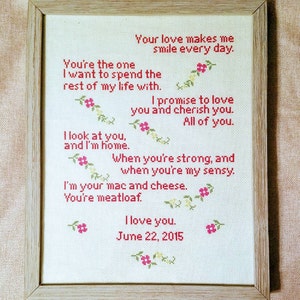 Your love makes me
smile every day.
You're the one
I want to spend the
rest of my life with.
I promise to love
you and cherish you.
All of you.
I look at you,
and I'm home.
When you're strong, and
when you're my sensy.
I'm your mac and cheese.
You're meatloaf.
I love you.
June 22, 2015